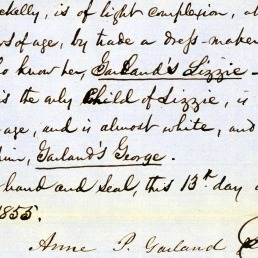 ekally, is of light complexion, a
rs of age, by trade a dress-maker
ho know her, Garland's Lizzie –
is the only Child of Lizzie, is
age, and is almost white, and
him, Garland's George.
hand and seal, this 13th day
1855.
Anne P. Garland